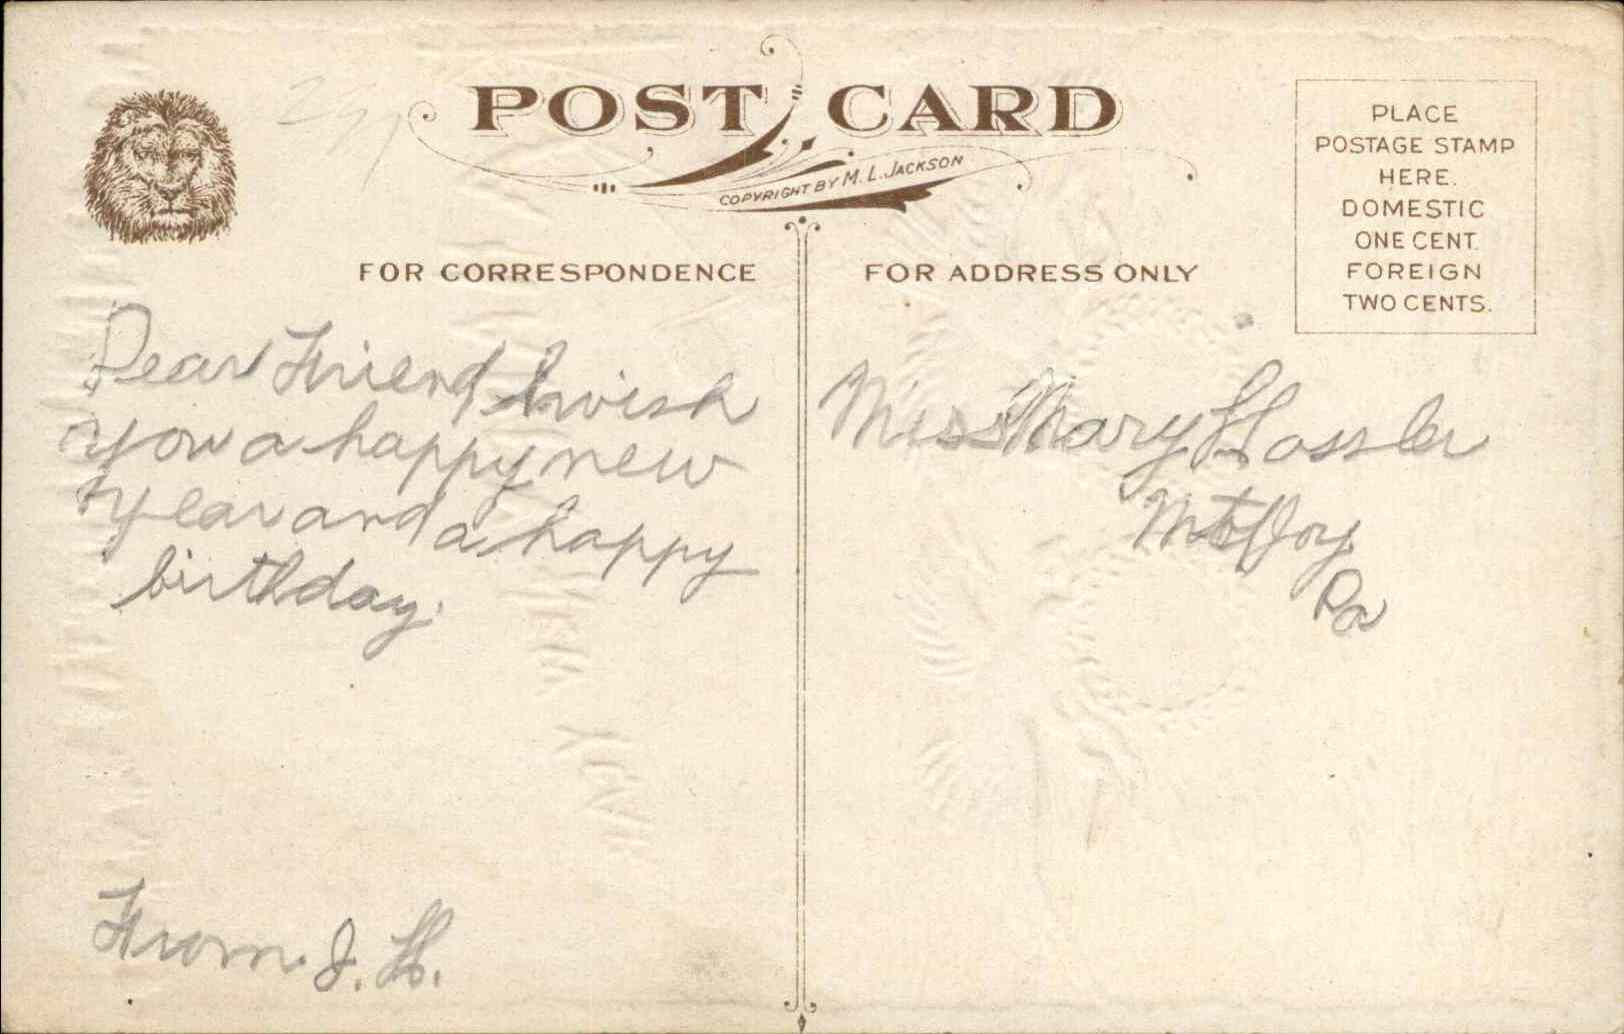 POST CARD
COPYRIGHT BY M. L. JACKSON
PLACE
POSTAGE STAMP
HERE.
DOMESTIC
ONE CENT.
FOREIGN
TWO CENTS.
FOR CORRESPONDENCE
FOR ADDRESS ONLY
Dear Friend, I wish
you a happy new
year and a happy
birthday.
From. J. H.
Miss Mary Hossler
Mt Joy
Pa